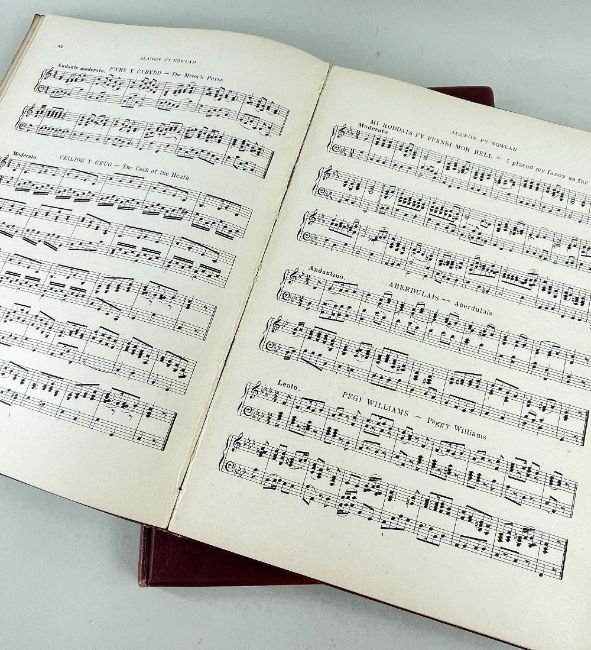 42
ALAWON FY NGWLAD
Andante moderato. PWRS Y CYBYDD — The Miser's Purse
Moderato. CEILIOG Y GRUG — The Cock of the Heath
ALAWON FY NGWLAD
MI RODDAIS FY FFANSI MOR BELL — I placed my fancy so far
Moderato
Andantino. ABERDULAIS — Aberdulais
Lento. PEGI WILLIAMS — Peggy Williams